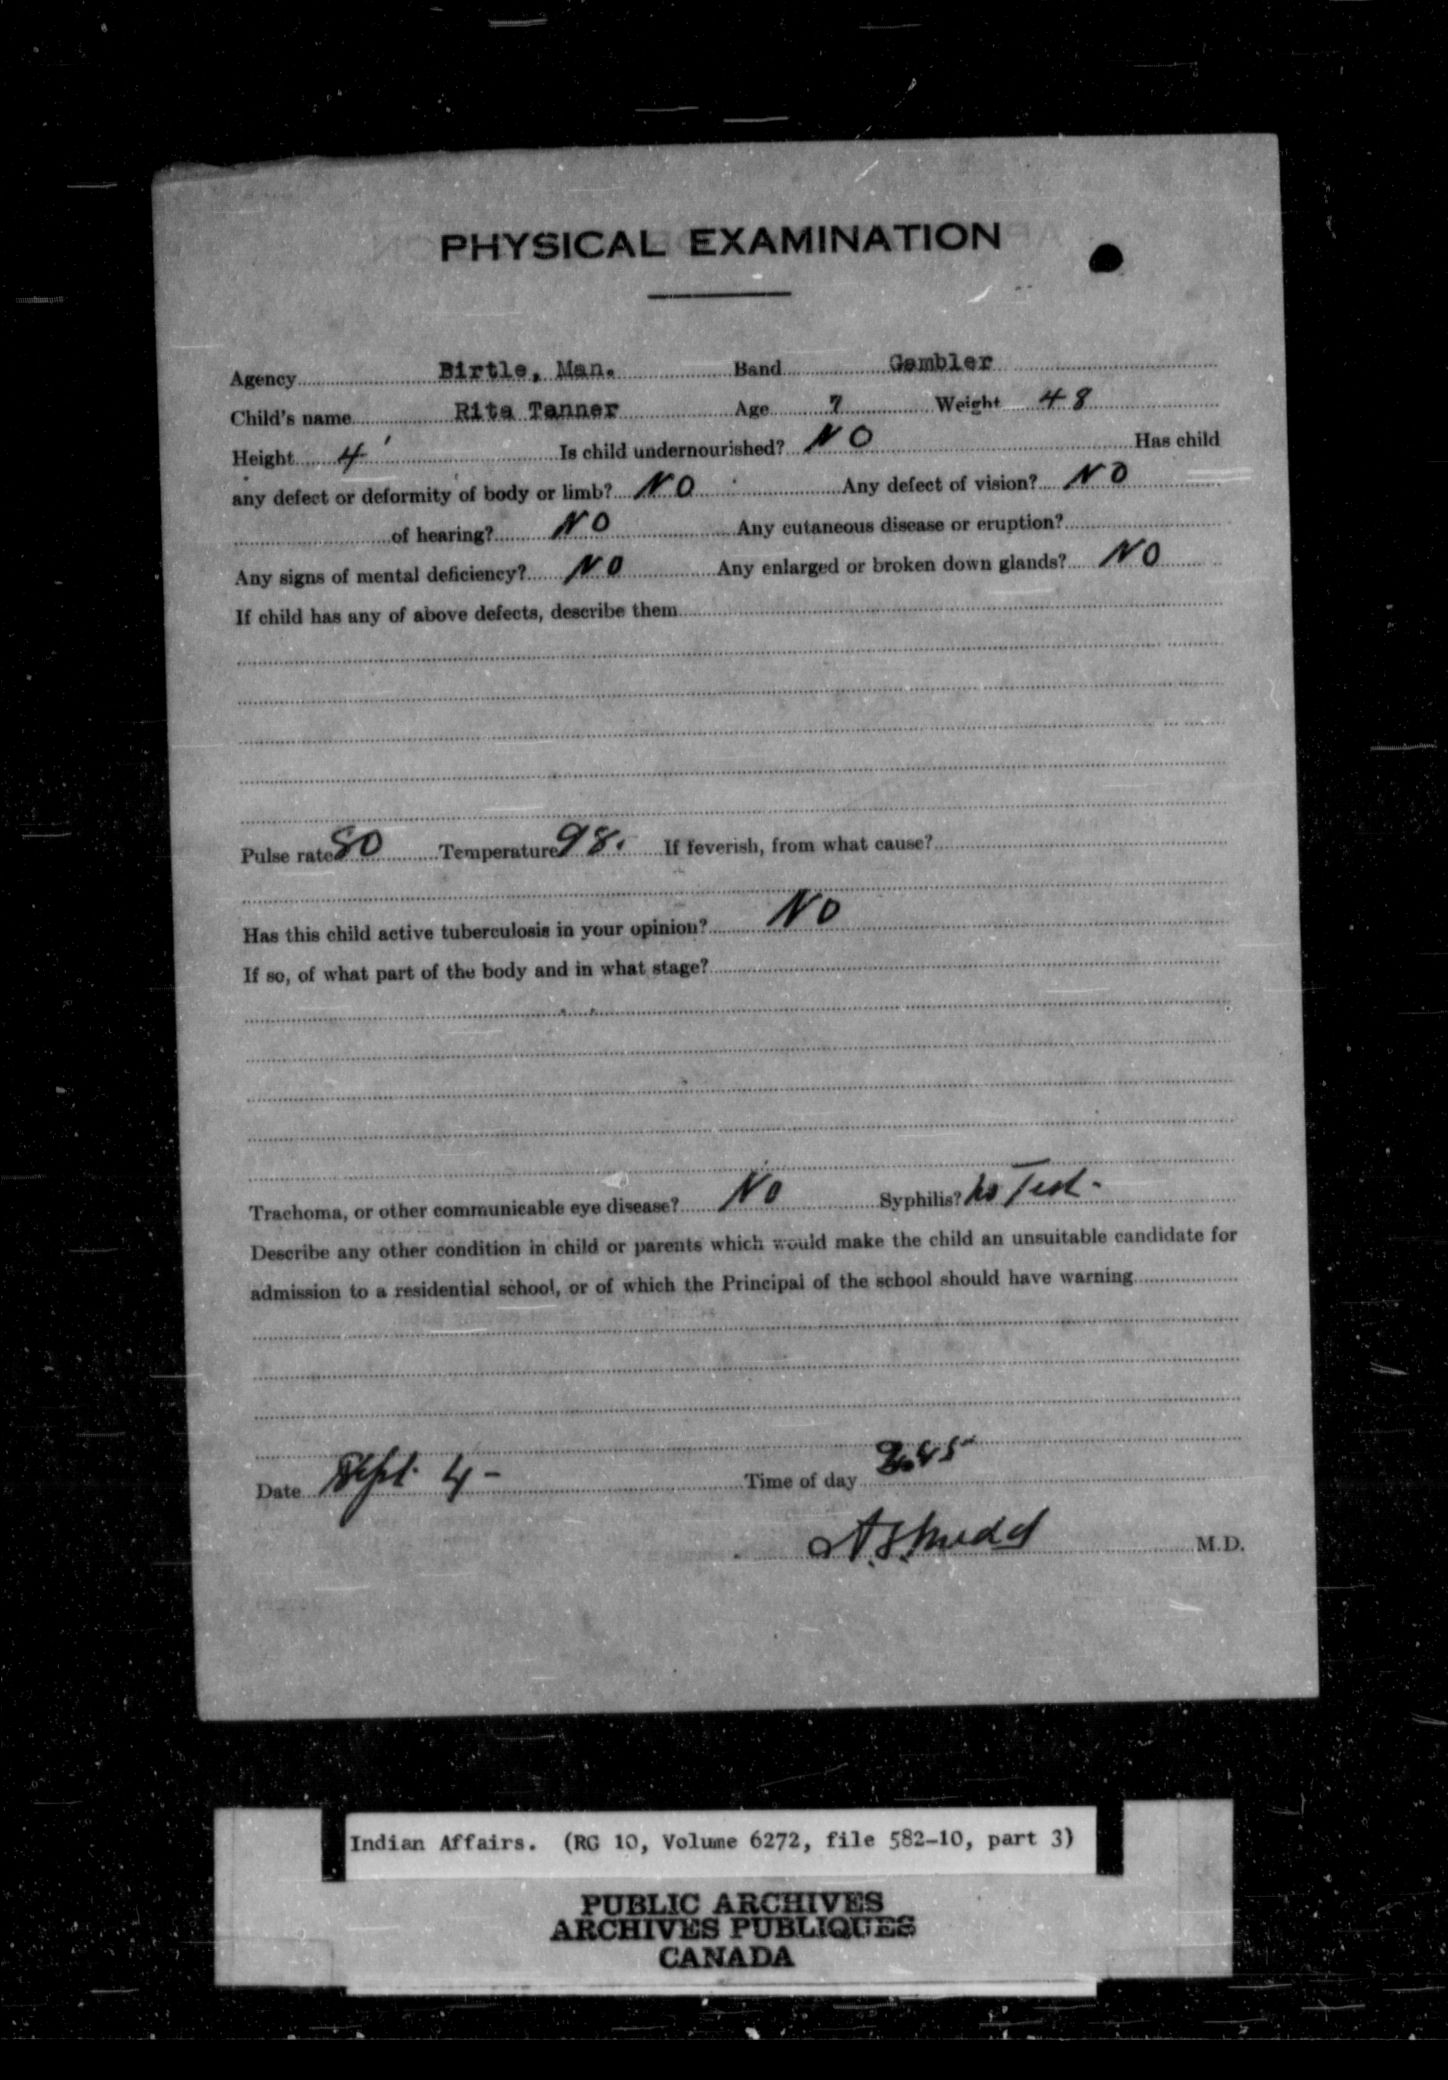 PHYSICAL EXAMINATION
Agency Birtle, Man. Band Gambler
Child's name Rita Tanner Age 7 Weight 48
Height 4' Is child undernourished? NO Has child
any defect or deformity of body or limb? NO Any defect of vision? NO
of hearing? NO Any cutaneous disease or eruption?
Any signs of mental deficiency? NO Any enlarged or broken down glands? NO
If child has any of above defects, describe them
Pulse rate 80 Temperature 98. If feverish, from what cause?
Has this child active tuberculosis in your opinion? NO
If so, of what part of the body and in what stage?
Trachoma, or other communicable eye disease? No Syphilis? no Test-
Describe any other condition in child or parents which would make the child an unsuitable candidate for
admission to a residential school, or of which the Principal of the school should have warning
Date Sept. 4- Time of day
M.D.
Indian Affairs. (RG 10, Volume 6272, file 582-10, part 3)
PUBLIC ARCHIVES
ARCHIVES PUBLIQUES
CANADA